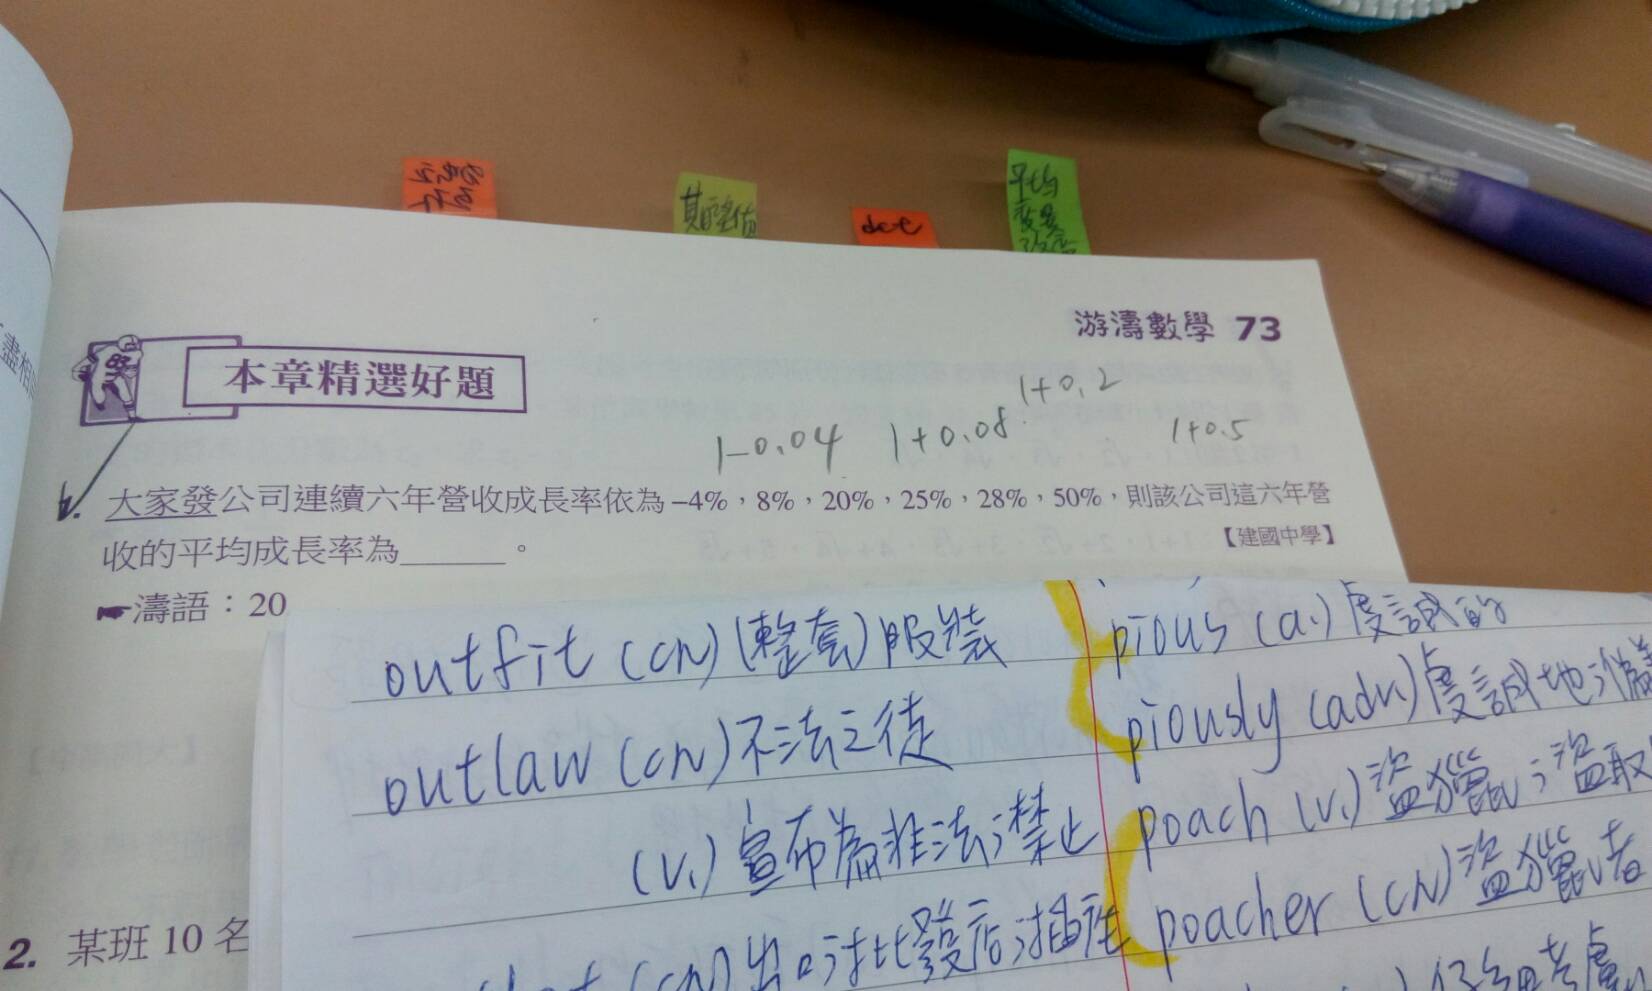 其配到值
det
平均
游濤數學 73
本章精選好題
1+0.2
1-0.04 1+0.08 1+0.5
大家發公司連續六年營收成長率依為 -4%，8%，20%，25%，28%，50%，則該公司這六年營
收的平均成長率為______。 【建國中學】
☛濤語：20
outfit (cn) (整套) 服裝
outlaw (cn) 不法之徒
(v.) 宣布為非法；禁止
(cn) 出口；批發店；插座
pious (a.) 虔誠的
piously (adv.) 虔誠地；偽
poach (v.) 盜獵；盜取
poacher (cn) 盜獵者
仔細考慮
2. 某班 10 名